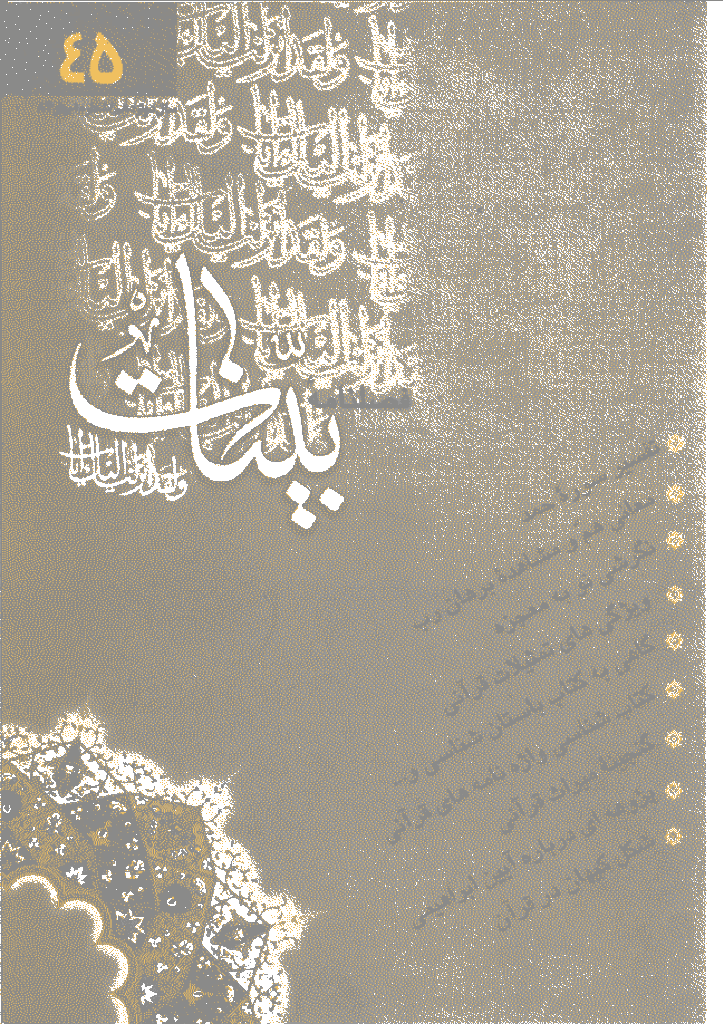 ۴۵
بینات
فصلنامه
تفسیر سوره حمد
معانی همّ و مشاهدهٔ برهان رب
نگرشی نو به معجزه
ویژگی های تمثیلات قرآنی
گاهی به کتاب باستان شناسی و...
کتاب شناسی واژه نامه های قرآنی
گنجینهٔ میراث قرآنی
پژوهه ای درباره آیین ابراهیمی
شکل کیهان در قرآن